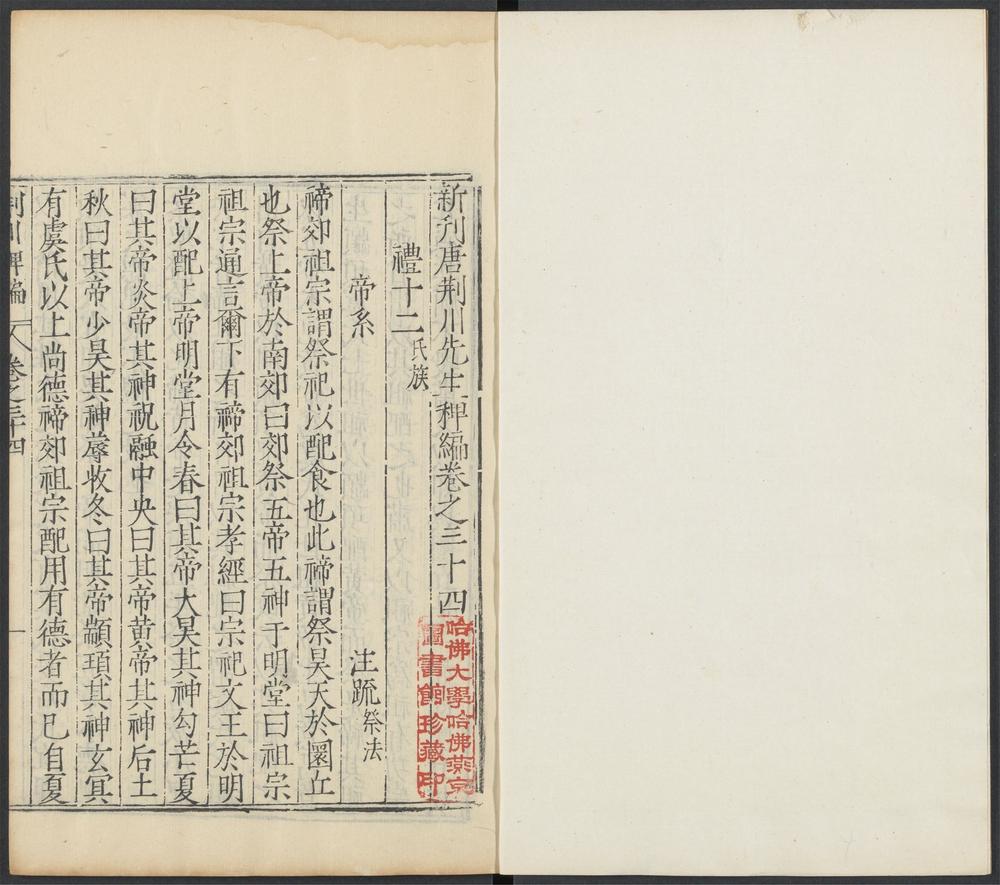 新刋唐荆川先生稗編卷之三十四
禮十二氏族
帝系 注疏祭法
禘郊祖宗謂祭祀以配食也此禘謂祭昊天於圜丘
也祭上帝於南郊曰郊祭五帝五神于明堂曰祖宗
祖宗通言爾下有禘郊祖宗孝經曰宗祀文王於明
堂以配上帝明堂月令春曰其帝大昊其神勾芒夏
曰其帝炎帝其神祝融中央曰其帝黄帝其神后土
秋曰其帝少昊其神蓐收冬曰其帝顓頊其神玄冥
有虞氏以上尚德禘郊祖宗配用有德者而已自夏
荆川稗編 卷之三十四 一
哈佛大學哈佛燕京
圖書館珍藏印